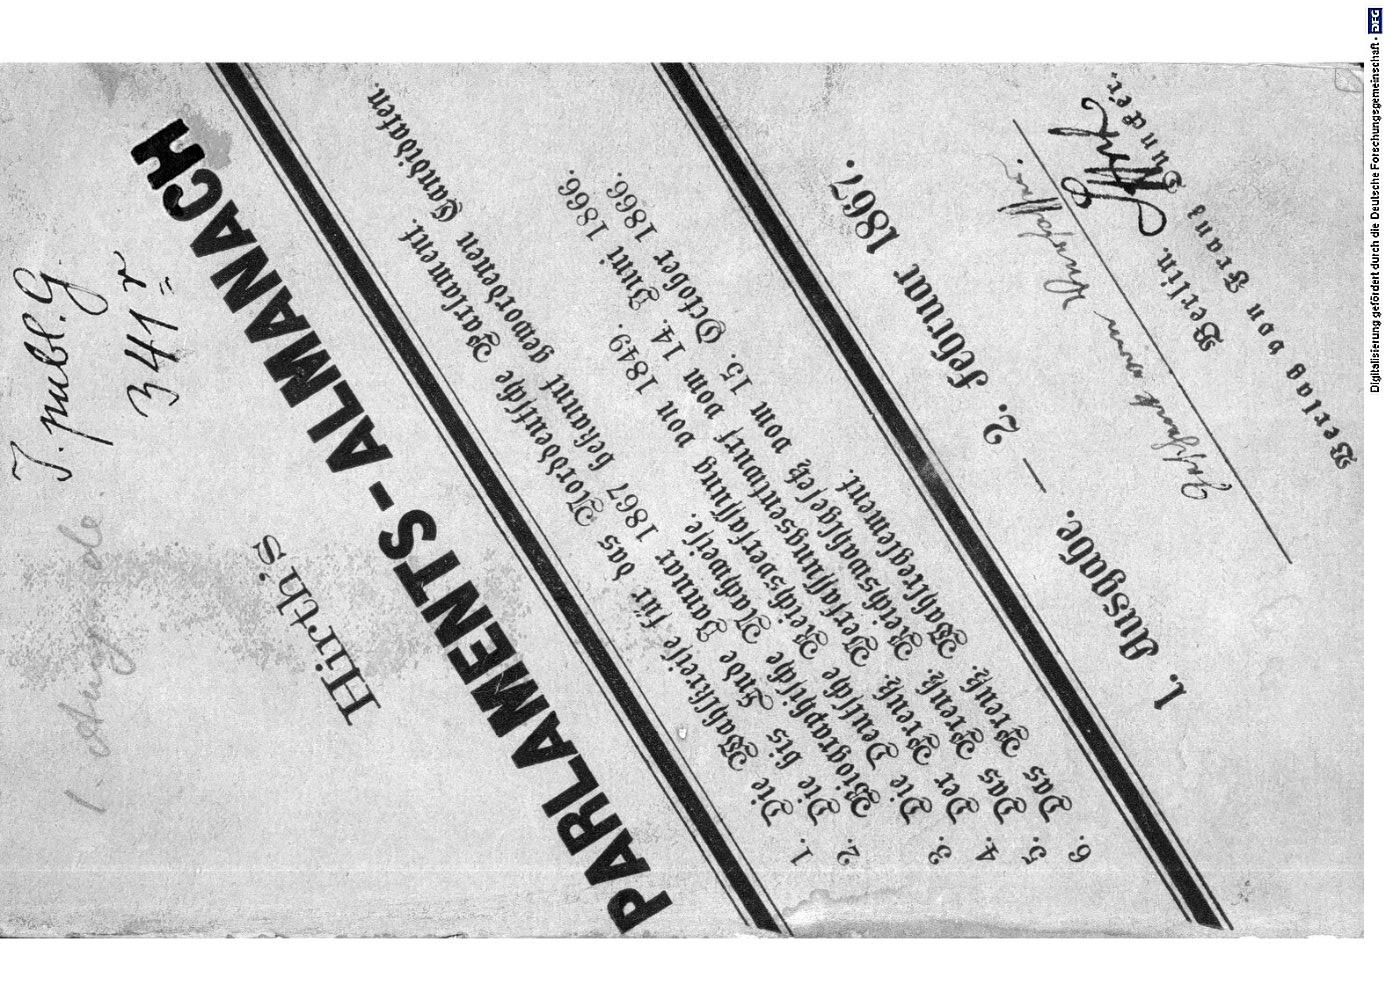 J. publ. G.
341 r
1. Ausgabe
Hirth's
PARLAMENTS-ALMANACH
1. Die Wahlkreise für das Norddeutsche Parlament.
Die bis Ende Januar 1867 bekannt gewordenen Candidaten.
2. Biographische Nachweise.
3. Die Deutsche Reichsverfassung von 1849.
4. Der Preuß. Verfassungsentwurf vom 14. Juni 1866.
5. Das Preuß. Reichswahlgesetz vom 15. October 1866.
6. Das Preuß. Wahlreglement.
1. Ausgabe. — 2. Februar 1867.
Berlin.
Verlag von Franz Duncker.
Digitalisierung gefördert durch die Deutsche Forschungsgemeinschaft - DFG